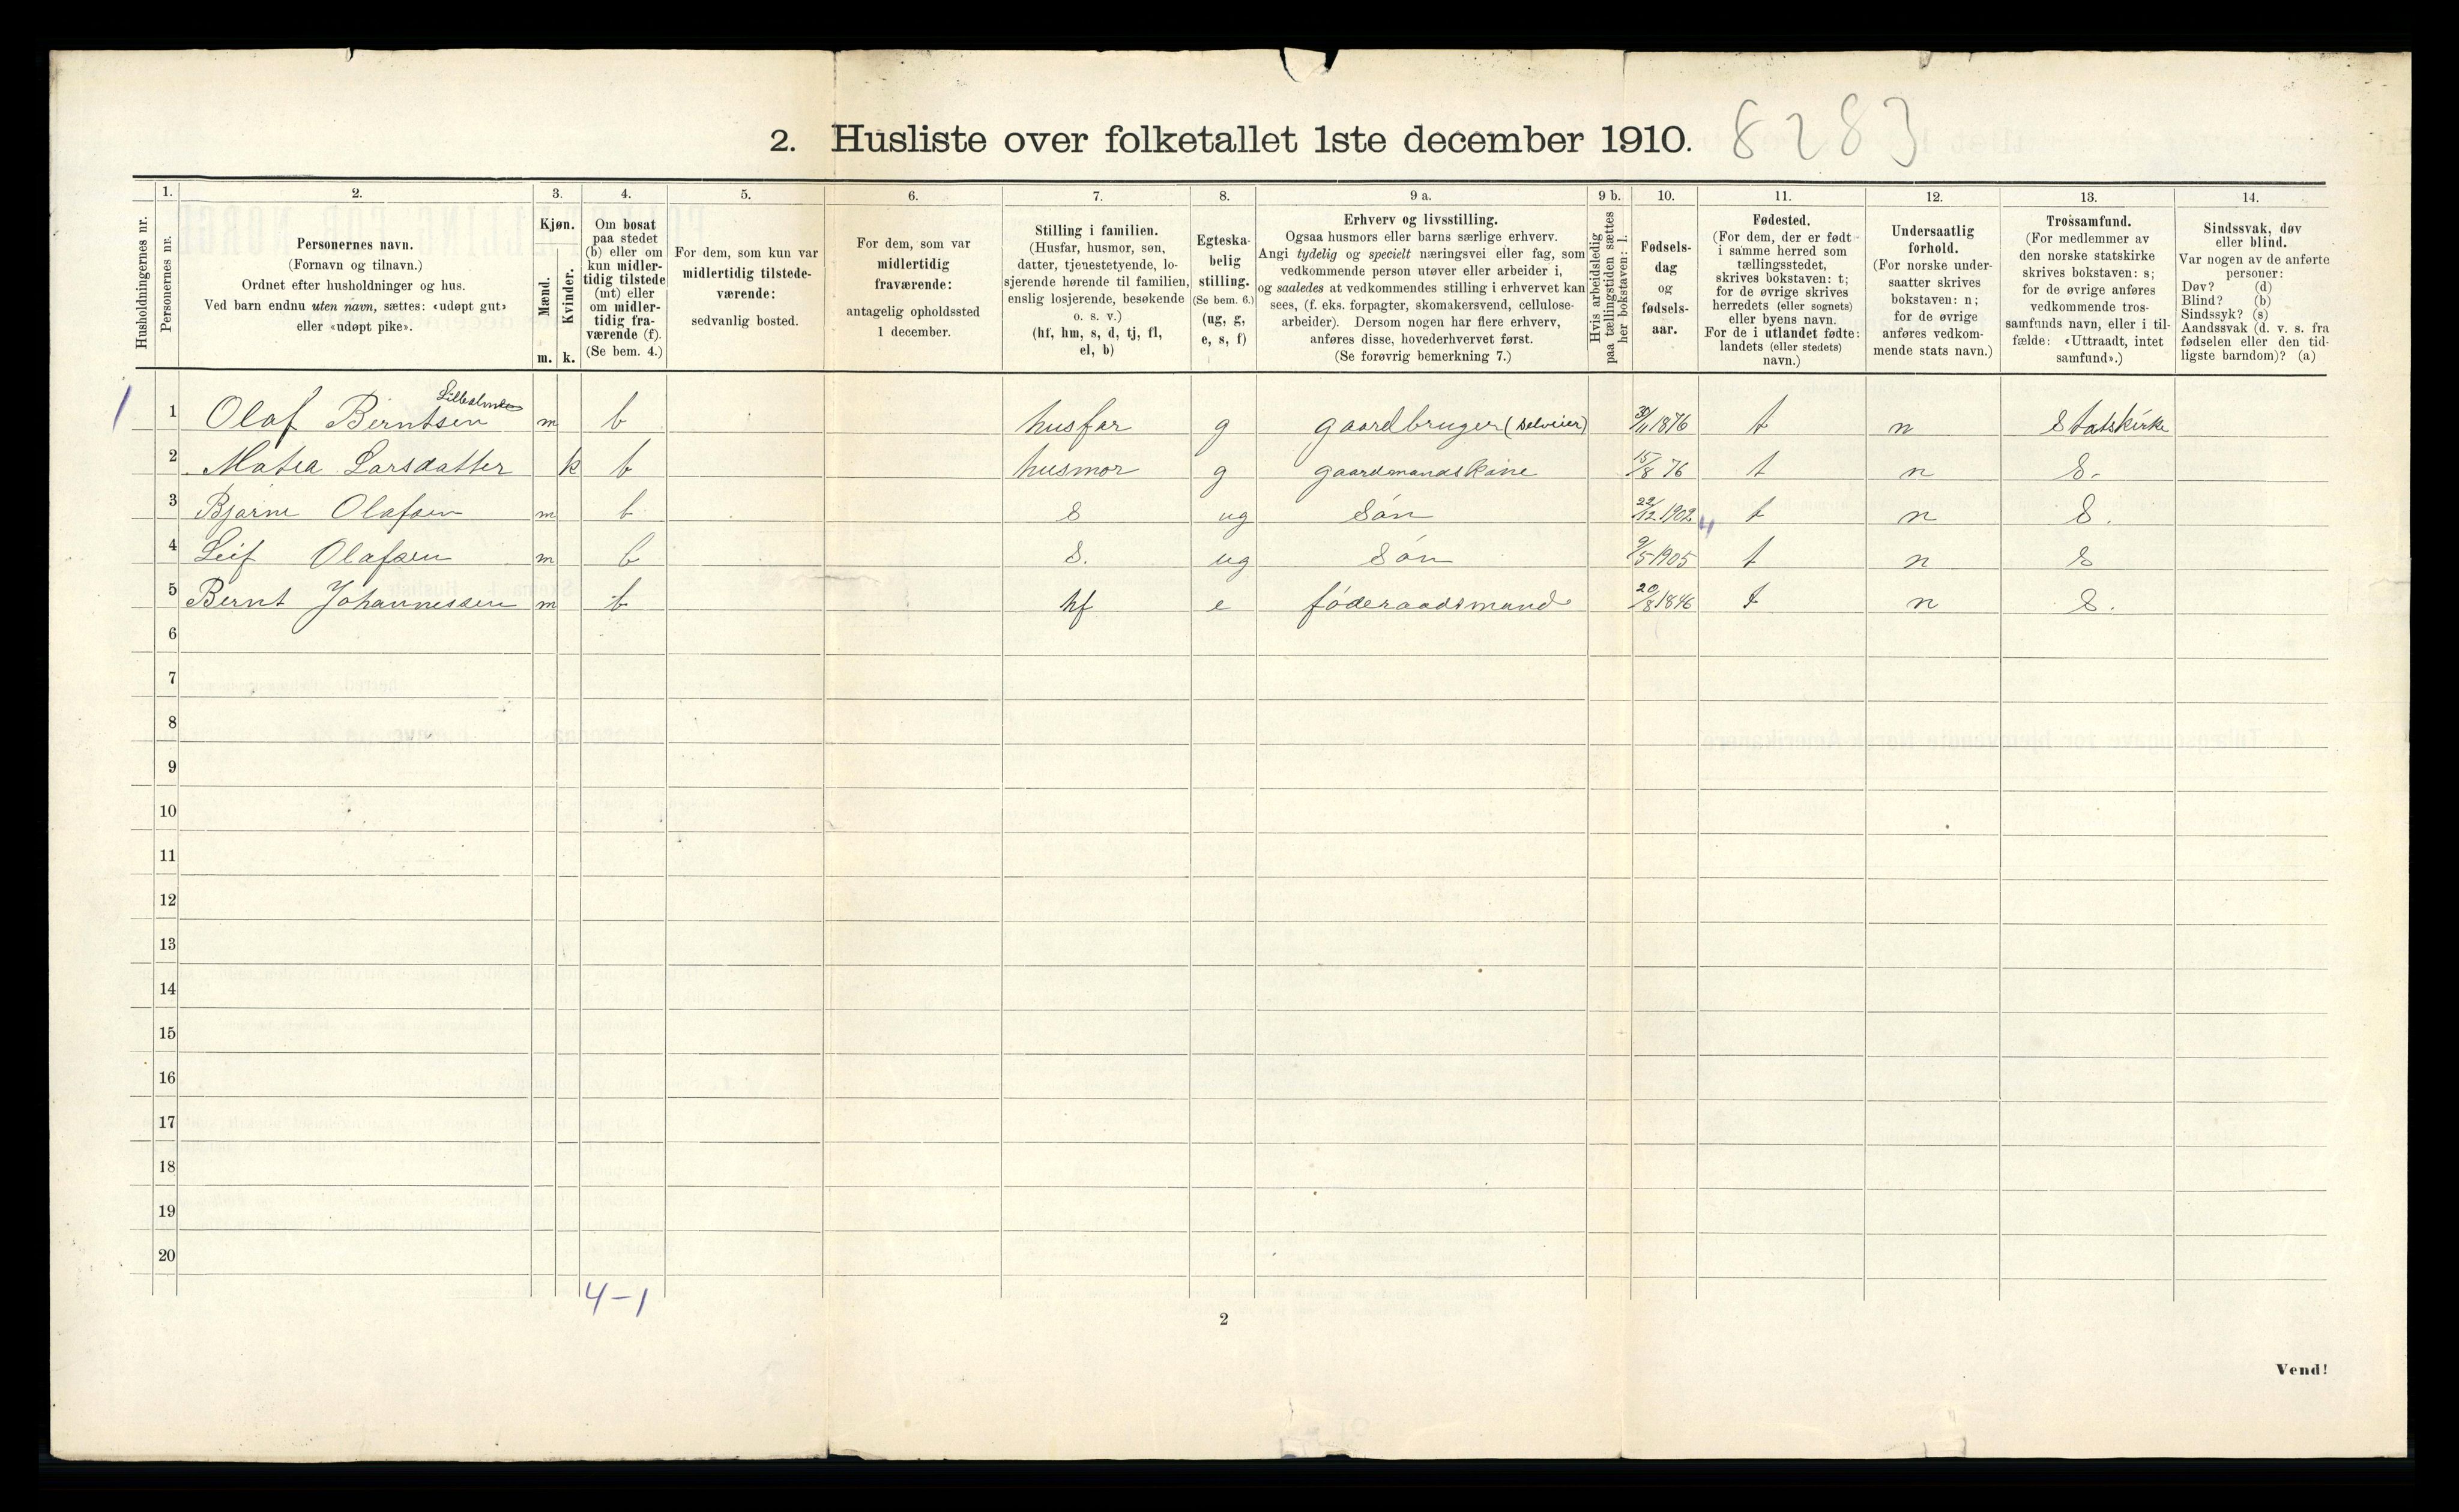 2. Husliste over folketallet 1ste december 1910. 8283
Husholdningernes nr.
1. Personernes nr.
2. Personernes navn.
(Fornavn og tilnavn.)
Ordnet efter husholdninger og hus.
Ved barn endnu uten navn, sættes: «udøpt gut»
eller «udøpt pike».
3. Kjøn.
Mænd. Kvinder.
m. k.
4. Om bosat
paa stedet
(b) eller om
kun midler-
tidig tilstede
(mt) eller
om midler-
tidig fra-
værende (f).
(Se bem. 4.)
5. For dem, som kun var
midlertidig tilstede-
værende:
sedvanlig bosted.
6. For dem, som var
midlertidig
fraværende:
antagelig opholdssted
1 december.
7. Stilling i familien.
(Husfar, husmor, søn,
datter, tjenestetyende, lo-
sjerende hørende til familien,
enslig losjerende, besøkende
o. s. v.)
(hf, hm, s, d, tj, fl,
el, b)
8. Egteska-
belig
stilling.
(Se bem. 6.)
(ug, g,
e, s, f)
9 a. Erhverv og livsstilling.
Ogsaa husmors eller barns særlige erhverv.
Angi tydelig og specielt næringsvei eller fag, som
vedkommende person utøver eller arbeider i,
og saaledes at vedkommendes stilling i erhvervet kan
sees, (f. eks. forpagter, skomakersvend, cellulose-
arbeider). Dersom nogen har flere erhverv,
anføres disse, hovederhvervet først.
(Se forøvrig bemerkning 7.)
9 b. Hvis arbeidsledig
paa tællingstiden sættes
her bokstaven: l.
10. Fødsels-
dag
og
fødsels-
aar.
11. Fødested.
(For dem, der er født
i samme herred som
tællingsstedet,
skrives bokstaven: t;
for de øvrige skrives
herredets (eller sognets)
eller byens navn.
For de i utlandet fødte:
landets (eller stedets)
navn.)
12. Undersaatlig
forhold.
(For norske under-
saatter skrives
bokstaven: n;
for de øvrige
anføres vedkom-
mende stats navn.)
13. Trossamfund.
(For medlemmer av
den norske statskirke
skrives bokstaven: s;
for de øvrige anføres
vedkommende tros-
samfunds navn, eller i til-
fælde: «Uttraadt, intet
samfund».)
14. Sindssvak, døv
eller blind.
Var nogen av de anførte
personer:
Døv? (d)
Blind? (b)
Sindssyk? (s)
Aandssvak (d. v. s. fra
fødselen eller den tid-
ligste barndom)? (a)
1 1 Olaf Berntsen m b husfar g gaardbruger (Selveier) 30/11 1876 t n Statskirke
2 Matea Larsdatter k b husmor g gaardmandskone 15/8 76 t n S.
3 Bjarne Olafsen m b S ug Søn 22/12 1902 4 t n S.
4 Leif Olafsen m b S. ug Søn 9/5 1905 t n S
5 Bernt Johannessen m b hf e føderaadsmand 20/8 1846 t n S.
6
7
8
9
10
11
12
13
14
15
16
17
18
19
20
4-1
2
Vend!